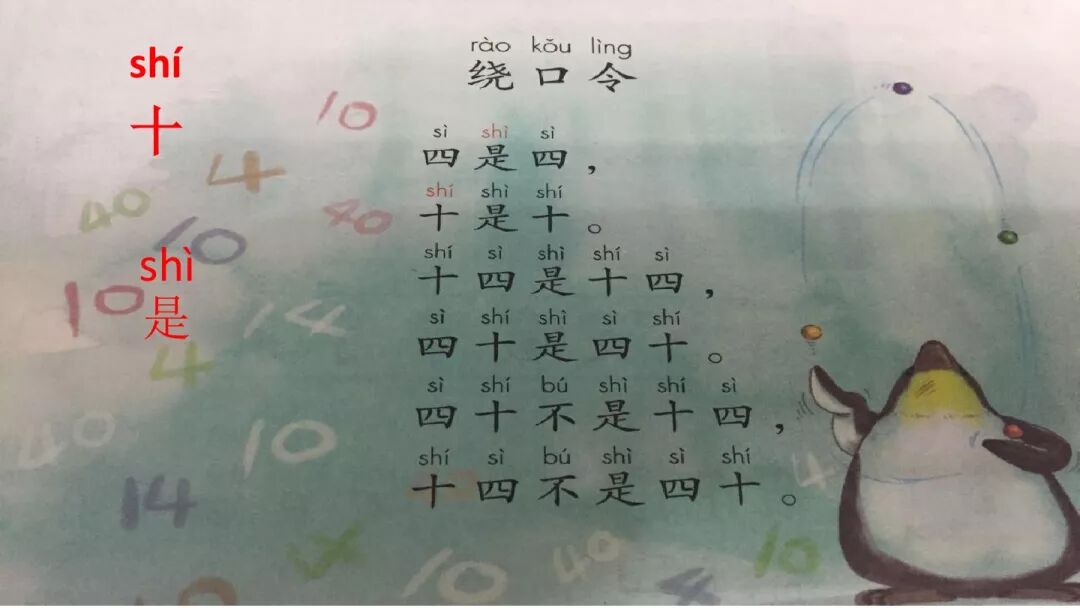 shí
十
shì
是
rào kǒu lìng
绕口令
sì shì sì
四是四，
shí shì shí
十是十。
shí sì shì shí sì
十四是十四，
sì shí shì sì shí
四十是四十。
sì shí bú shì shí sì
四十不是十四，
shí sì bú shì sì shí
十四不是四十。
10
4
40
40
10
10
14
4
40
10
14
4
10
40
10
10